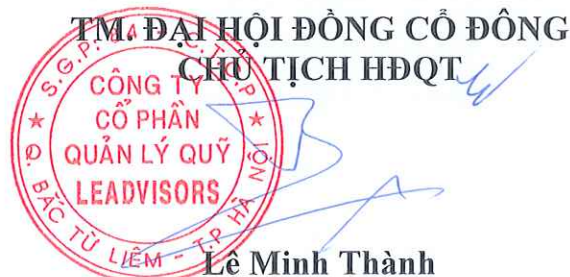 TM. ĐẠI HỘI ĐỒNG CỔ ĐÔNG
CHỦ TỊCH HĐQT
CÔNG TY
CỔ PHẦN
QUẢN LÝ QUỸ
LEADVISORS
Q. BẮC TỪ LIÊM - T.P HÀ NỘI
Lê Minh Thành